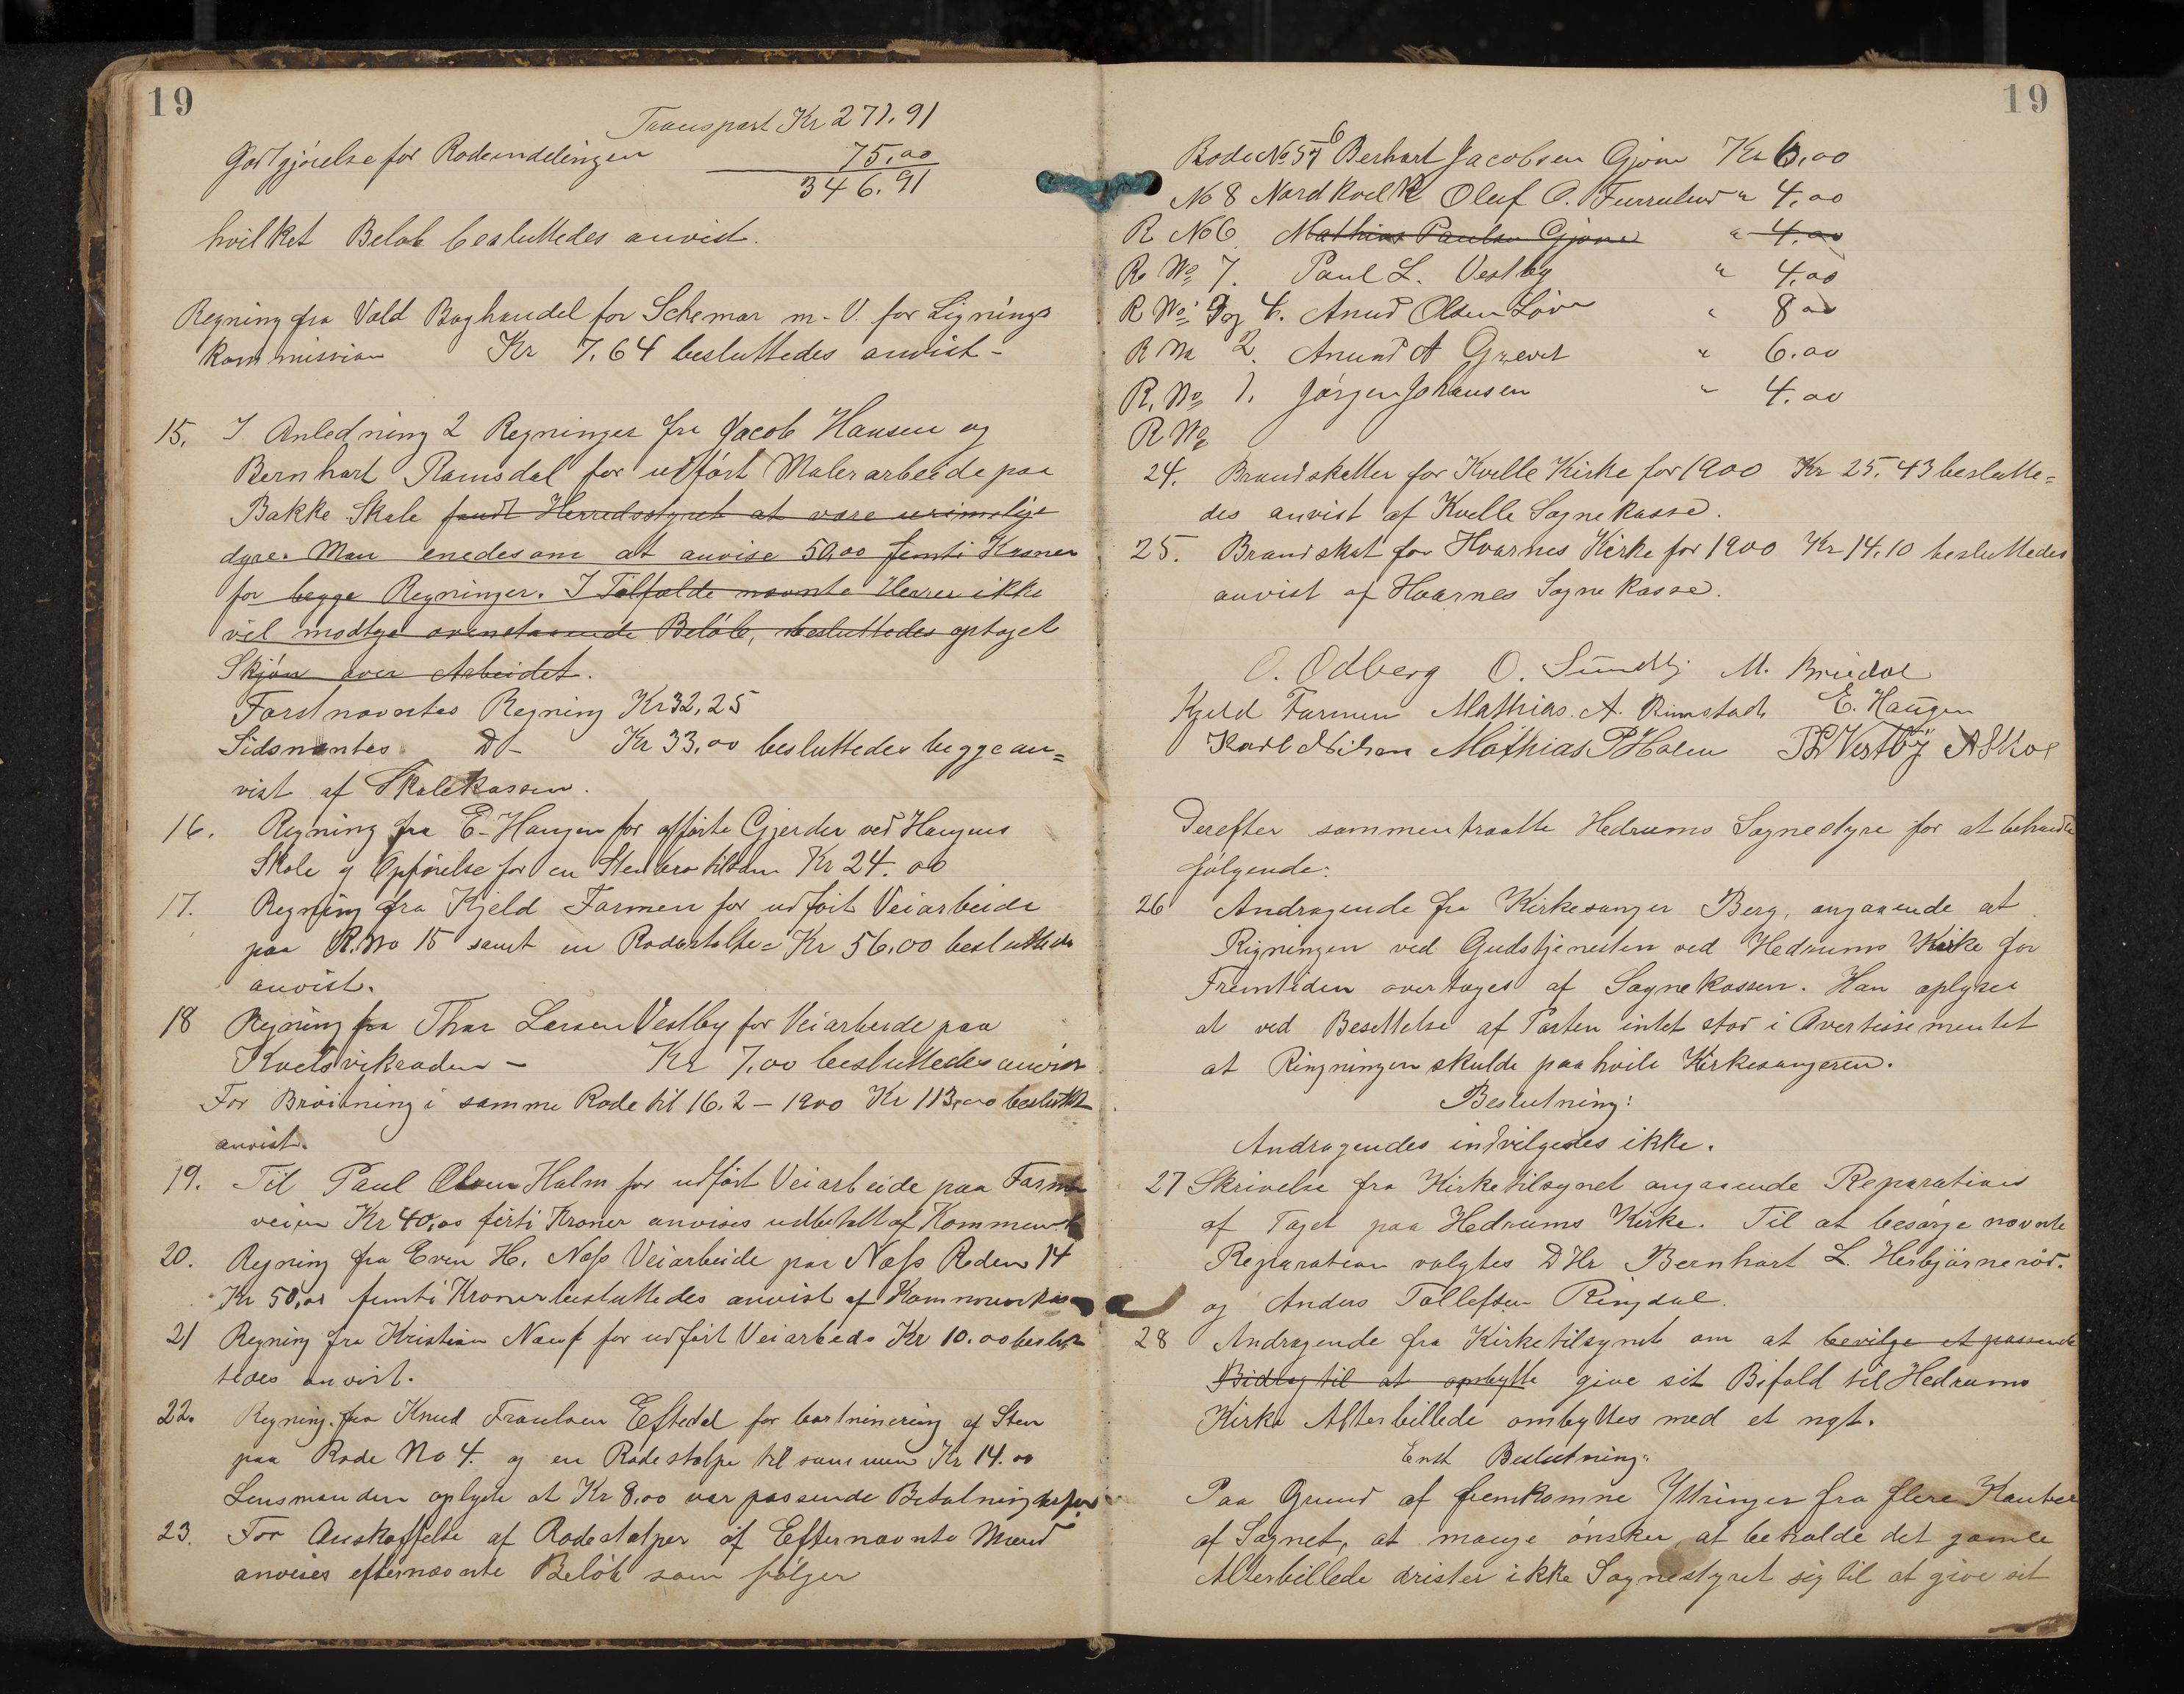 19
Transport Kr 271.91
Godtgjörelse for Rodeinddelingen 75,00
346.91
hvilket Beløb besluttedes anvist.
Regning fra Vald Boghandel for Schemar m. V. for Lignings
kommission Kr 7,64 besluttedes anvist -
15. I Anledning 2 Regninger fra Jacob Hansen og
Bernhart Ramsdal for udført Malerarbeide paa
Bakke Skole fandt Herredsstyret at være urimelige
dyre. Man enedes om at anvise 50,00 femti Kroner
for begge Regninger. I Tilfælde nævnte Herrer ikke
vil modtge ovenstaaende Beløb, besluttedes optaget
Skjøn over Arbeidet.
Forstnævntes Regning Kr 32,25
Sidsnæntes D- Kr 33,00 besluttedes begge an=
vist af Skolekassen.
16. Regning fra E. Haugen for opførte Gjerder ved Haugens
Skole og Opførelse for en Stenbro tilsam Kr 24.00
17. Regning fra Kjeld Farmen for udført Veiarbeide
paa R.No 15 samt en Rodestolpe = Kr 56,00 besluttedes
anvist.
18 Regning fra Thor Larsen Vestby for Veiarbeide paa
Kr 7,00 besluttedes anvist
For Brøitning i samme Rode til 16.2 - 1900 Kr 113,00 besluttet
anvist.
19. Til Paul Olsen Holm for udført Veiarbeide paa Farmen
veien Kr 40,00 firti Kroner anvises udbetalt af Kommunek
20. Regning fra Even H. Næss Veiarbeide paa Næss Roden 14
Kr 50,00 femti Kroner besluttedes anvist af Kommunekas
21 Regning fra Kristian for udført Veiarbeide Kr 10.00 beslut
tedes anvist.
22. Regning fra Knud Eftedal for bortminering af Sten
paa Rode No 4. og en Rodestolpe til sammen Kr 14.00
Lensmanden oplyste at Kr 8,00 var passende Betaling
23. For Anskaffelse af Rodestolper af Efternævnte Mænd
anvises efternævnte Beløb som følger
19
Rode No 5 6 Berhart Jacobsen Gjone Kr 6,00
No 8 Nord Kvelle Oluf O. " 4,00
R No 6 Mathias Paulsen Gjone " 4,00
R No 7. Paul L. Vestby " 4,00
R No 3 og 4. Anund Olsen " 8 00
R No 2. Anund A " 6.00
R. No 1. Jørgen Johansen " 4.00
R No
24. Brandskatten for Kvelle Kirke for 1900 Kr 25,43 beslutte=
des anvist af Kvelle Sognekasse.
25. Brandskat for Hvarnes Kirke for 1900 Kr 14,10 besluttedes
anvist af Hvarnes Sognekasse.
O. Odberg O. Sundby M. Bredal
Kjeld Farmen Mathias. A. Rimstad E. Haugen
Karl Nilsen Mathias P Holm P L Vestby A Skoe
Derefter sammentraatte Hedrums Sognestyre for at behandle
følgende:
26 Andragende fra Kirkesanger Berg, angaaende at
Rigningen ved Gudstjenesten ved Hedrums Kirke for
Fremtiden overtages af Sognekassen. Han oplyser
at ved Besettelse af Posten intet stod i Avertissementet
at Ringningen skulde paahvile Kirkesangeren.
Beslutning:
Andragendes indvilgedes ikke.
27 Skrivelse fra Kirketilsynet angaaende Reparation
af Taget paa Hedrums Kirke. Til at besørge nævnte
Reparation valgtes D Hr Bernhart L. Herbjørnerød.
og Anders Tollefsen Ringdal.
28 Andragende fra Kirketilsynet om at bevilge et passende
Bidrag til at ombytte give sit Bifald til Hedrums
Kirke Alterbillede ombyttes med et nyt.
Enst Beslutning:
Paa Grund af fremkomne Yttringer fra flere Kanter
af Sognet, at mange ønsker at beholde det gamle
Alterbillede drister ikke Sognestyret sig til at give sit